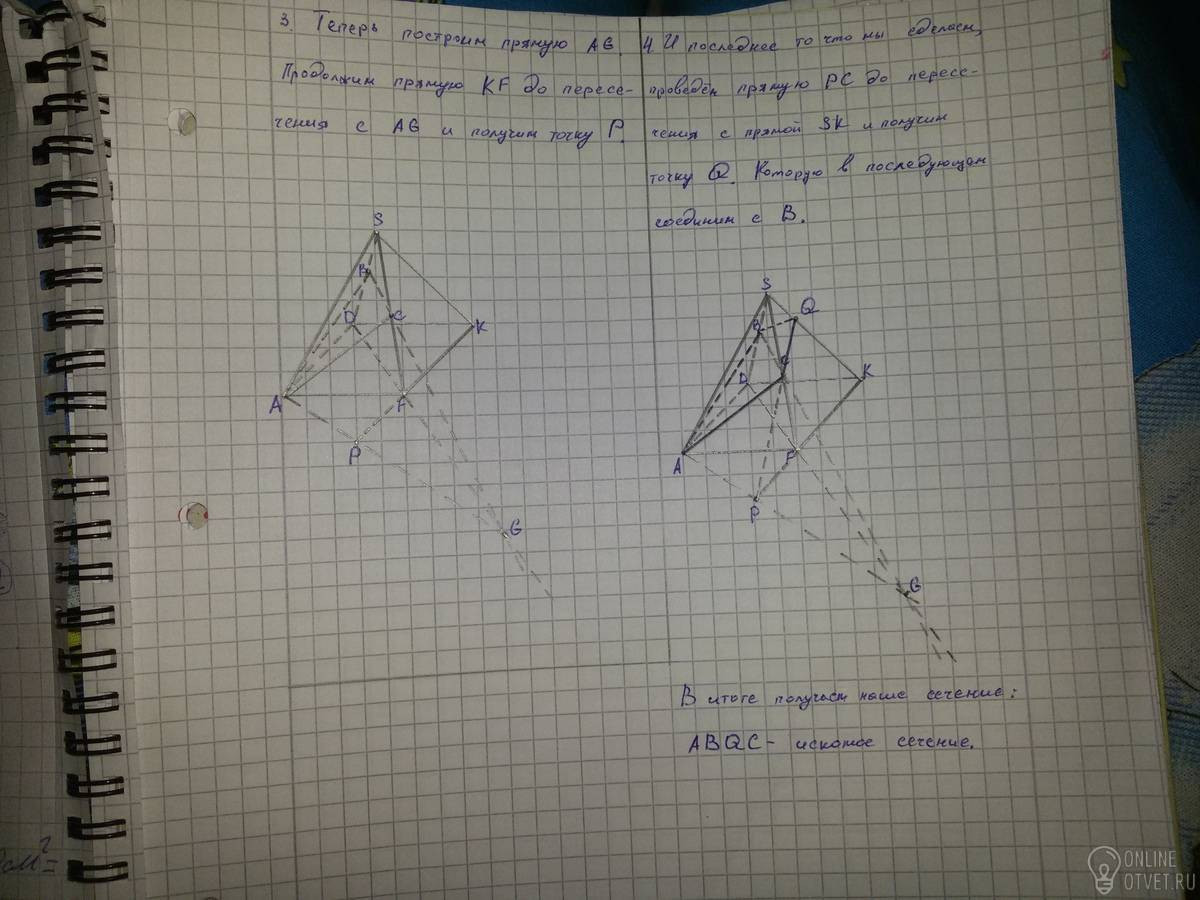 3. Теперь построим прямую AG.
Продолжим прямую KF до пересе-
чения с AG и получим точку P.
S
B
D
C
K
A
F
P
G
4. И последнее то что мы сделаем,
проведём прямую PC до пересе-
чения с прямой SK и получим
точку Q. Которую в последующем
соединим с B.
S
Q
B
C
D
K
A
F
P
G
В итоге получаем наше сечение:
ABQC - искомое сечение.
см²=
ONLINE
OTVET.RU